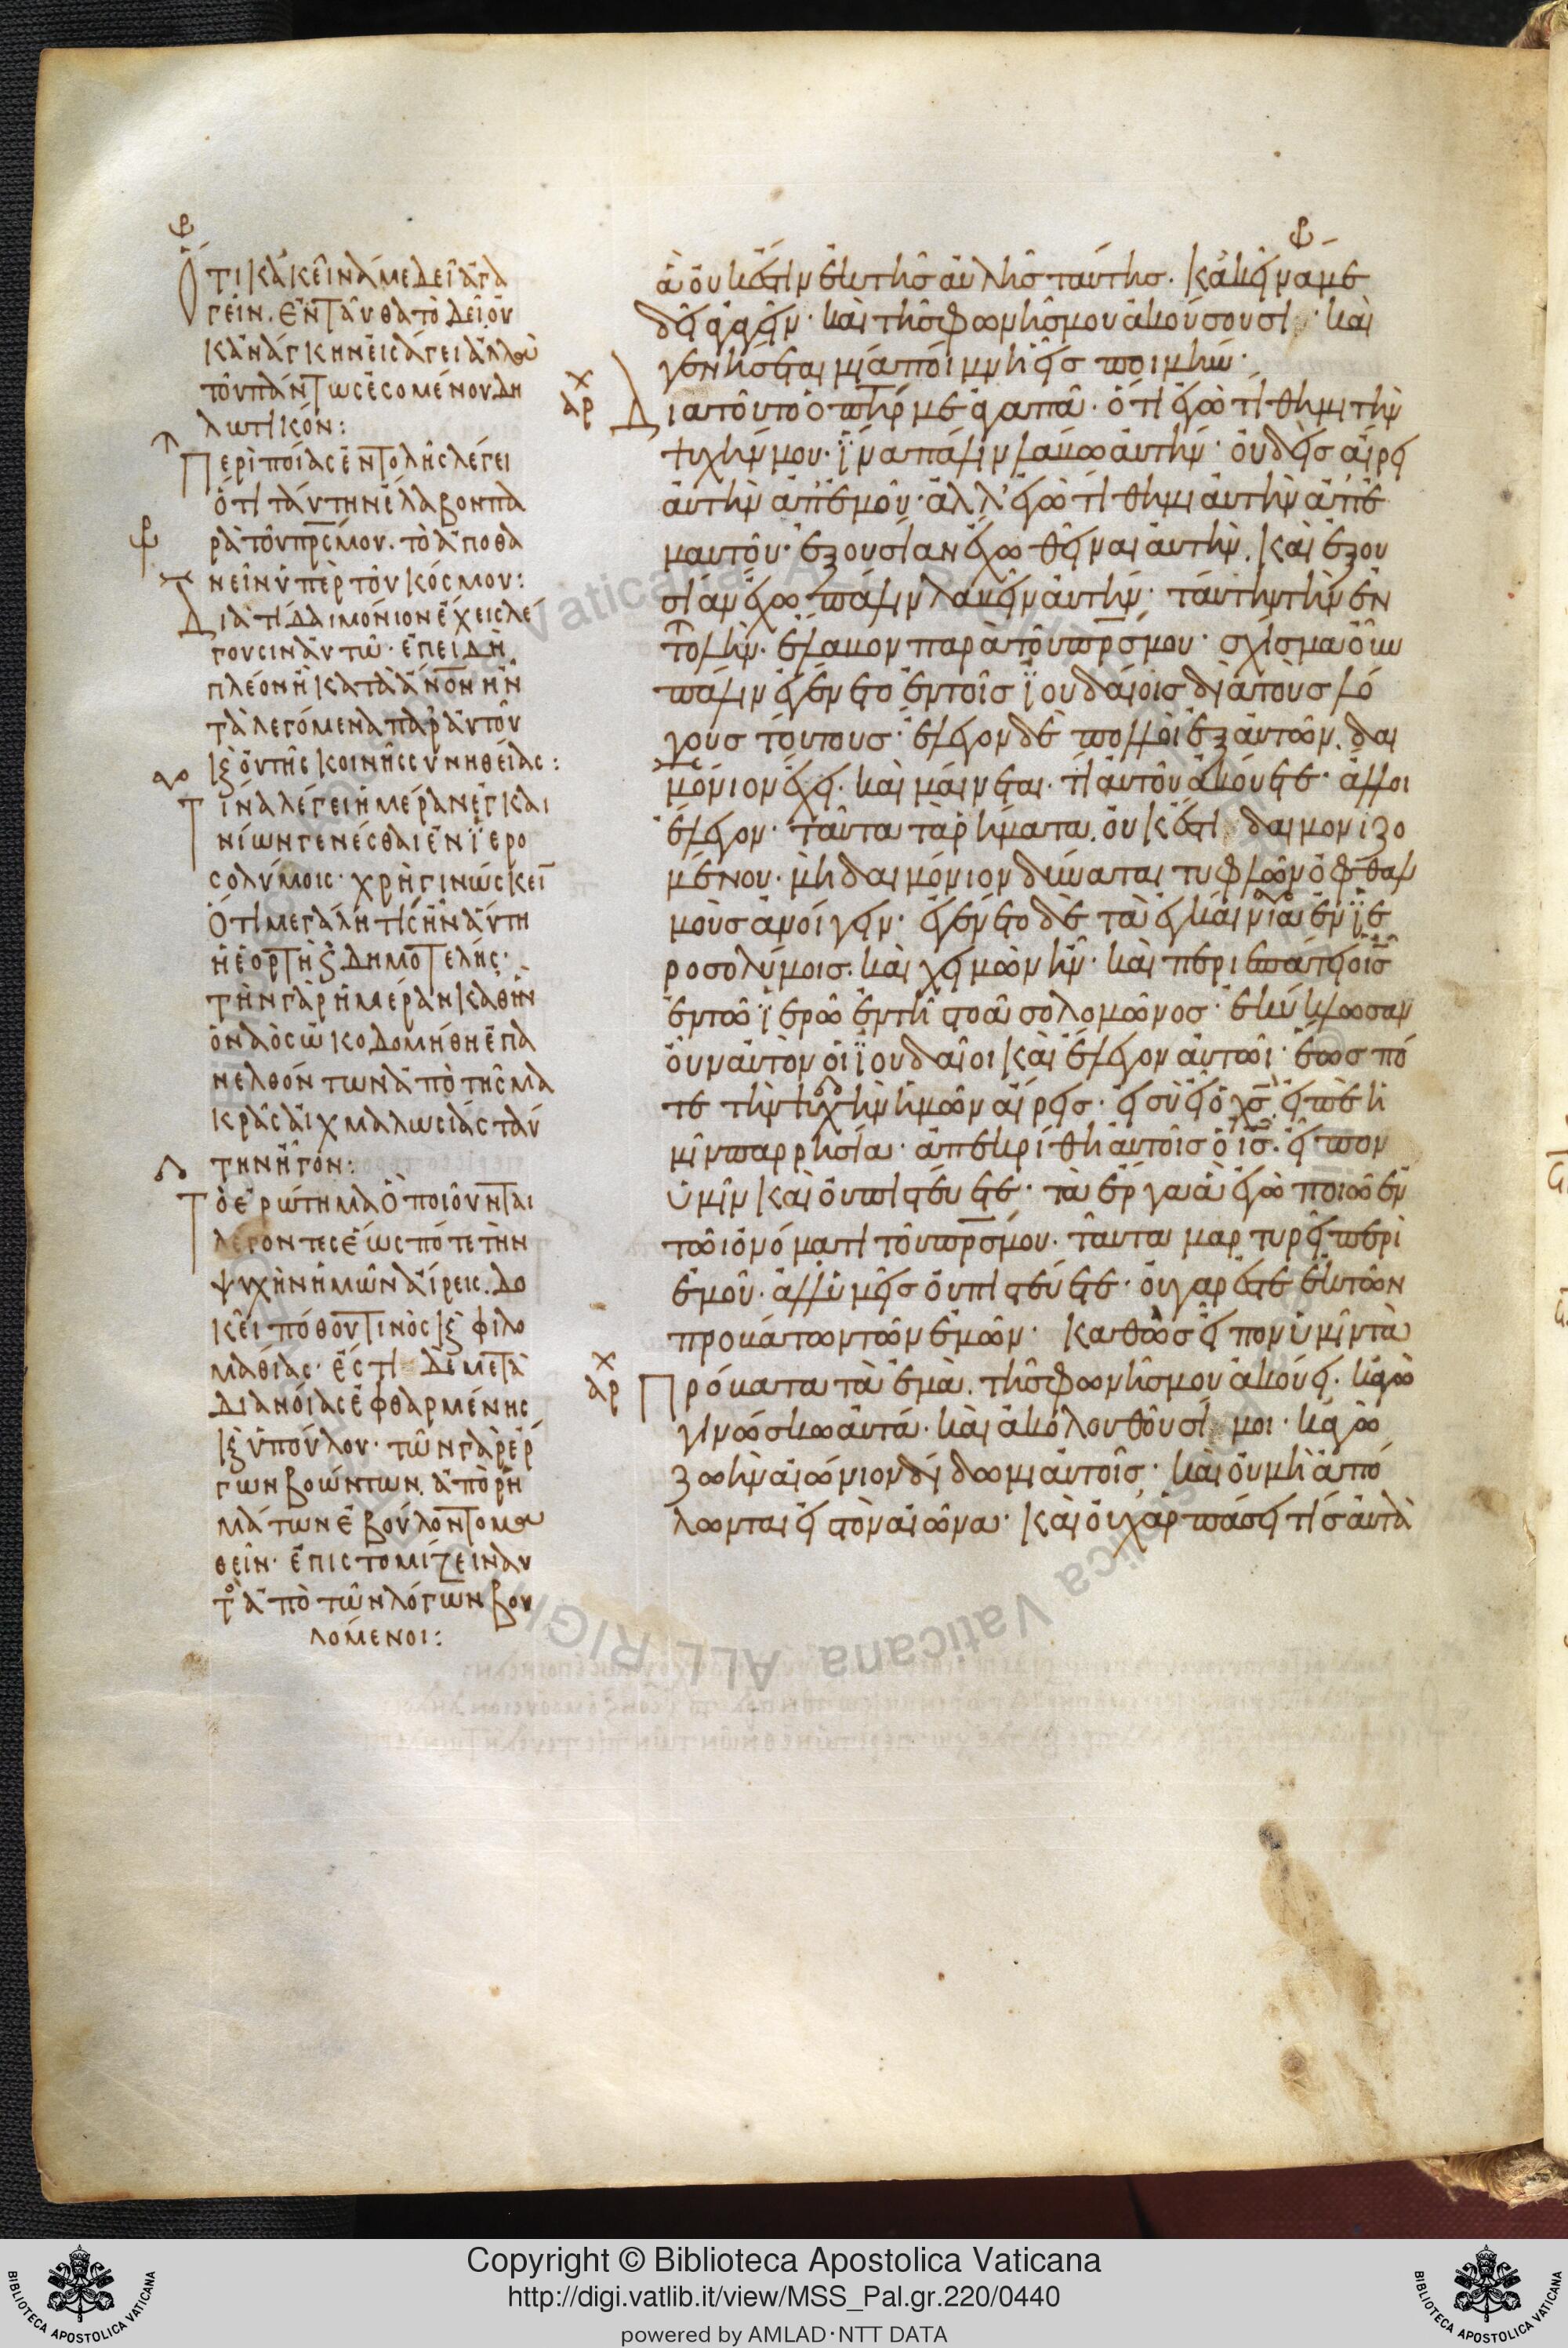 Ὅτι κἀκεῖνά με δεῖ ἀγα
γεῖν. ἐνταῦθα τὸ δεῖ οὐ
κ ἀνάγκην εἰσάγει ἀλλὰ
τοῦ πάντως ἐσομένου δη
λωτικόν:
Περὶ ποίας ἐντολῆς λέγει
ὅτι ταύτην ἔλαβον πα
ρὰ τοῦ πρσ μου. τὸ ἀποθα
νεῖν ὑπὲρ τοῦ κόσμου:
Διατί δαιμόνιον ἔχεις λέ
γουσιν αὐτῷ. ἐπειδὴ
πλέον ἢ κατὰ ἄνον ἦν
τὰ λεγόμενα παρ' αὐτοῦ
κ οὐ τῆς κοινῆς συνηθείας:
Τίνα λέγει ἡμέραν ἐγκαι
νίων γενέσθαι ἐν ϊερο
σολύμοις· χρὴ γινώσκειν
ὅτι μεγάλη τίς ἦν αὕτη
ἡ ἑορτὴ κ δημοτελής·
τὴν γὰρ ἡμέραν καθ' ἣν
ὁ ναὸς ὠκοδομήθη ἐπα
νελθόντων ἀπὸ τῆς μα
κρᾶς αἰχμαλωσίας ταύ
την ἦγον:
Τὸ ἐρώτημα ὃ ποιοῦνται
λέγοντες ἕως πότε τὴν
ψυχὴν ἡμῶν αἴρεις. δο
κεῖ πόθου τινὸς κ φιλο
μαθίας· ἔστι δὲ μετὰ
διανοίας ἐφθαρμένης
κ ὑπούλου· τῶν γὰρ ἔρ
γων βοώντων. ἀπὸ ῥη
μάτων ἐβούλοντο μα
θεῖν· ἐπιστομίζειν αυ
το ἀπὸ τῶν λόγων βου
λόμενοι:
ἃ οὐκ ἔστιν ἐκ τῆς αὐλῆς ταύτης. κἀκεῖνά με
δεῖ ἀγαγεῖν· καὶ τῆς φωνῆς μου ἀκούσουσι· καὶ
γενήσεται μία ποίμνη εἷς ποιμήν·
χ
αρ
Διατοῦτο ὁ πηρ με ἀγαπᾶ· ὅτι ἐγὼ τίθημι τὴν
ψυχήν μου· ϊνα πάλιν λάβω αὐτήν· οὐδεὶς αἴρει
αὐτὴν ἀπ' ἐμοῦ· ἀλλ' ἐγὼ τίθημι αὐτὴν ἀπ' ἐ
μαυτοῦ· ἐξουσίαν ἔχω θεῖναι αὐτήν. καὶ ἐξου
σίαν ἔχω πάλιν λαβεῖν αὐτήν· ταύτην τὴν ἐν
τολὴν ἔλαβον παρὰ τοῦ πρσ μου· σχίσμα οὖν
πάλιν ἐγένετο ἐν τοῖς ϊουδαίοις διὰ τοὺς λό
γους τούτους· ἔλεγον δὲ πολλοὶ ἐξ αὐτῶν. δαι
μόνιον ἔχει. καὶ μαίνεται. τί αὐτοῦ ἀκούετε· ἄλλοι
ἔλεγον· ταῦτα τὰ ῥήματα. οὐκ ἔστι δαιμονιζο
μένου· μὴ δαιμόνιον δύναται τυφλῶν ὀφθαλ
μοὺς ἀνοίγειν· ἐγένετο δὲ τὰ ἐγκαίνια ἐν ϊε
ροσολύμοις. καὶ χειμὼν ἦν· καὶ περιεπάτει ὁ ισ
ἐν τῶ ϊερῶ ἐν τῆ στοᾶ σολομῶνος· ἐκύκλωσαν
οὖν αὐτὸν οἱ ϊουδαῖοι καὶ ἔλεγον αὐτῶι· ἕως πό
τε τὴν ψυχὴν ἡμῶν αἴρεις· εἰ σὺ εἶ ὁ χσ. εἰπὲ ἡ
μῖν παρρησία· ἀπεκρίθη αὐτοῖς ὁ ισ. εἶπον
ὑμῖν καὶ οὐ πιστεύετε· τὰ ἔργα ἃ ἐγὼ ποιῶ ἐν
τῶι ὀνόματι τοῦ πρσ μου. ταῦτα μαρτυρεῖ περὶ
ἐμοῦ. ἀλλ' ὑμεῖς οὐ πιστεύετε· οὐ γάρ ἐστε ἐκ τῶν
προβάτων τῶν ἐμῶν· καθὼς εἶπον ὑμῖν τὰ
χ
αρ
Πρόβατα τὰ ἐμὰ. τῆς φωνῆς μου ἀκούει. κἀγὼ
γινώσκω αὐτά· καὶ ἀκολουθοῦσί μοι· κἀγὼ
ζωὴν αἰώνιον δίδωμι αὐτοῖς· καὶ οὐ μὴ ἀπό
λωνται εἰς τὸν αἰῶνα· καὶ οὐχ ἁρπάσει τίς αὐτὰ
Copyright © Biblioteca Apostolica Vaticana
http://digi.vatlib.it/view/MSS_Pal.gr.220/0440
powered by AMLAD·NTT DATA
BIBLIOTECA APOSTOLICA VATICANA
BIBLIOTECA APOSTOLICA VATICANA